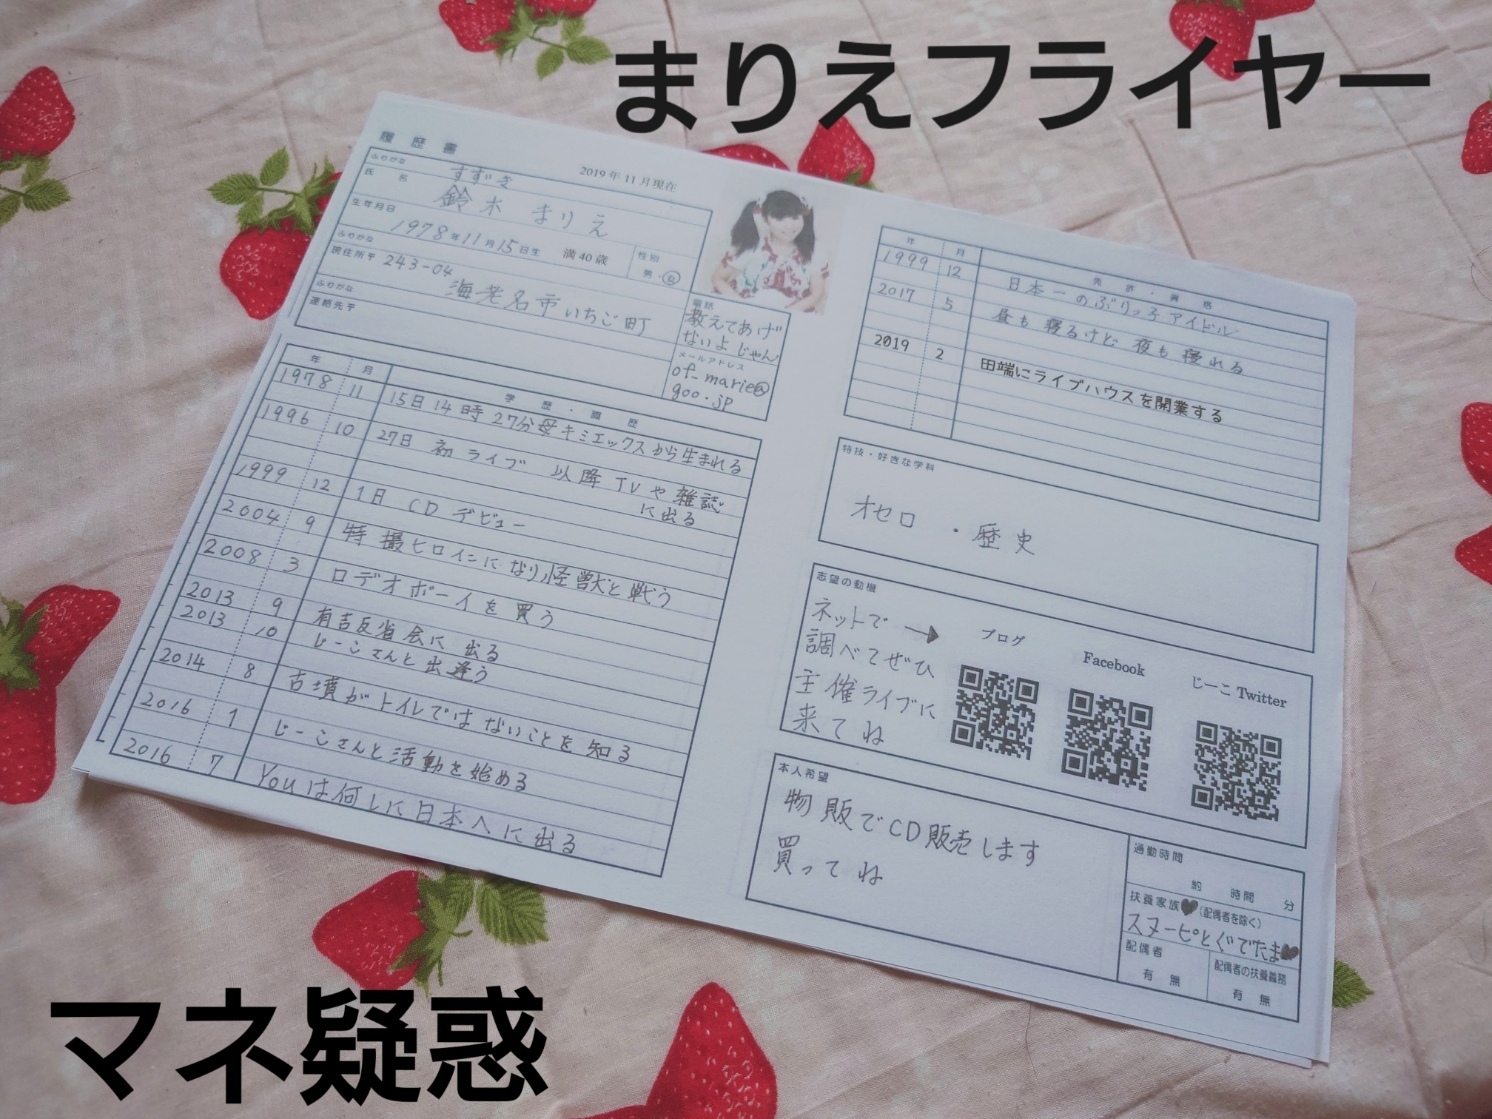 まりえフライヤー
履歴書
2019年11月現在
ふりがな
すずき
氏名
鈴木 まりえ
生年月日
1978年11月15日生 満40歳
性別
男・女
ふりがな
現住所〒243-04
海老名市いちご町
ふりがな
連絡先〒
電話
教えてあげ
ないよじゃん
メールアドレス
of_marie@
goo.jp
年 月 学歴・職歴
1978 11 15日14時27分母キミエックスから生まれる
1996 10 27日 初ライブ 以降TVや雑誌
に出る
1999 12 1日 CDデビュー
2004 9 特撮ヒロインになり怪獣と戦う
2008 3 ロデオボーイを買う
2013 9 有吉反省会に出る
2013 10 じーこさんと出逢う
2014 8 古墳がトイレではないことを知る
2016 1 じーこさんと活動を始める
2016 7 Youは何しに日本へに出る
年 月 免許・資格
1999 12 日本一のぶりっ子アイドル
2017 5 昼も寝るけど夜も寝れる
2019 2 田端にライブハウスを開業する
特技・好きな学科
オセロ ・歴史
志望の動機
ネットで →
調べてぜひ
主催ライブに
来てね
ブログ
Facebook
じーこ Twitter
本人希望
物販でCD販売します
買ってね
通勤時間
約 時間 分
扶養家族♥(配偶者を除く)
スヌーピとぐでたま♥
配偶者
有 無
配偶者の扶養義務
有 無
マネ疑惑